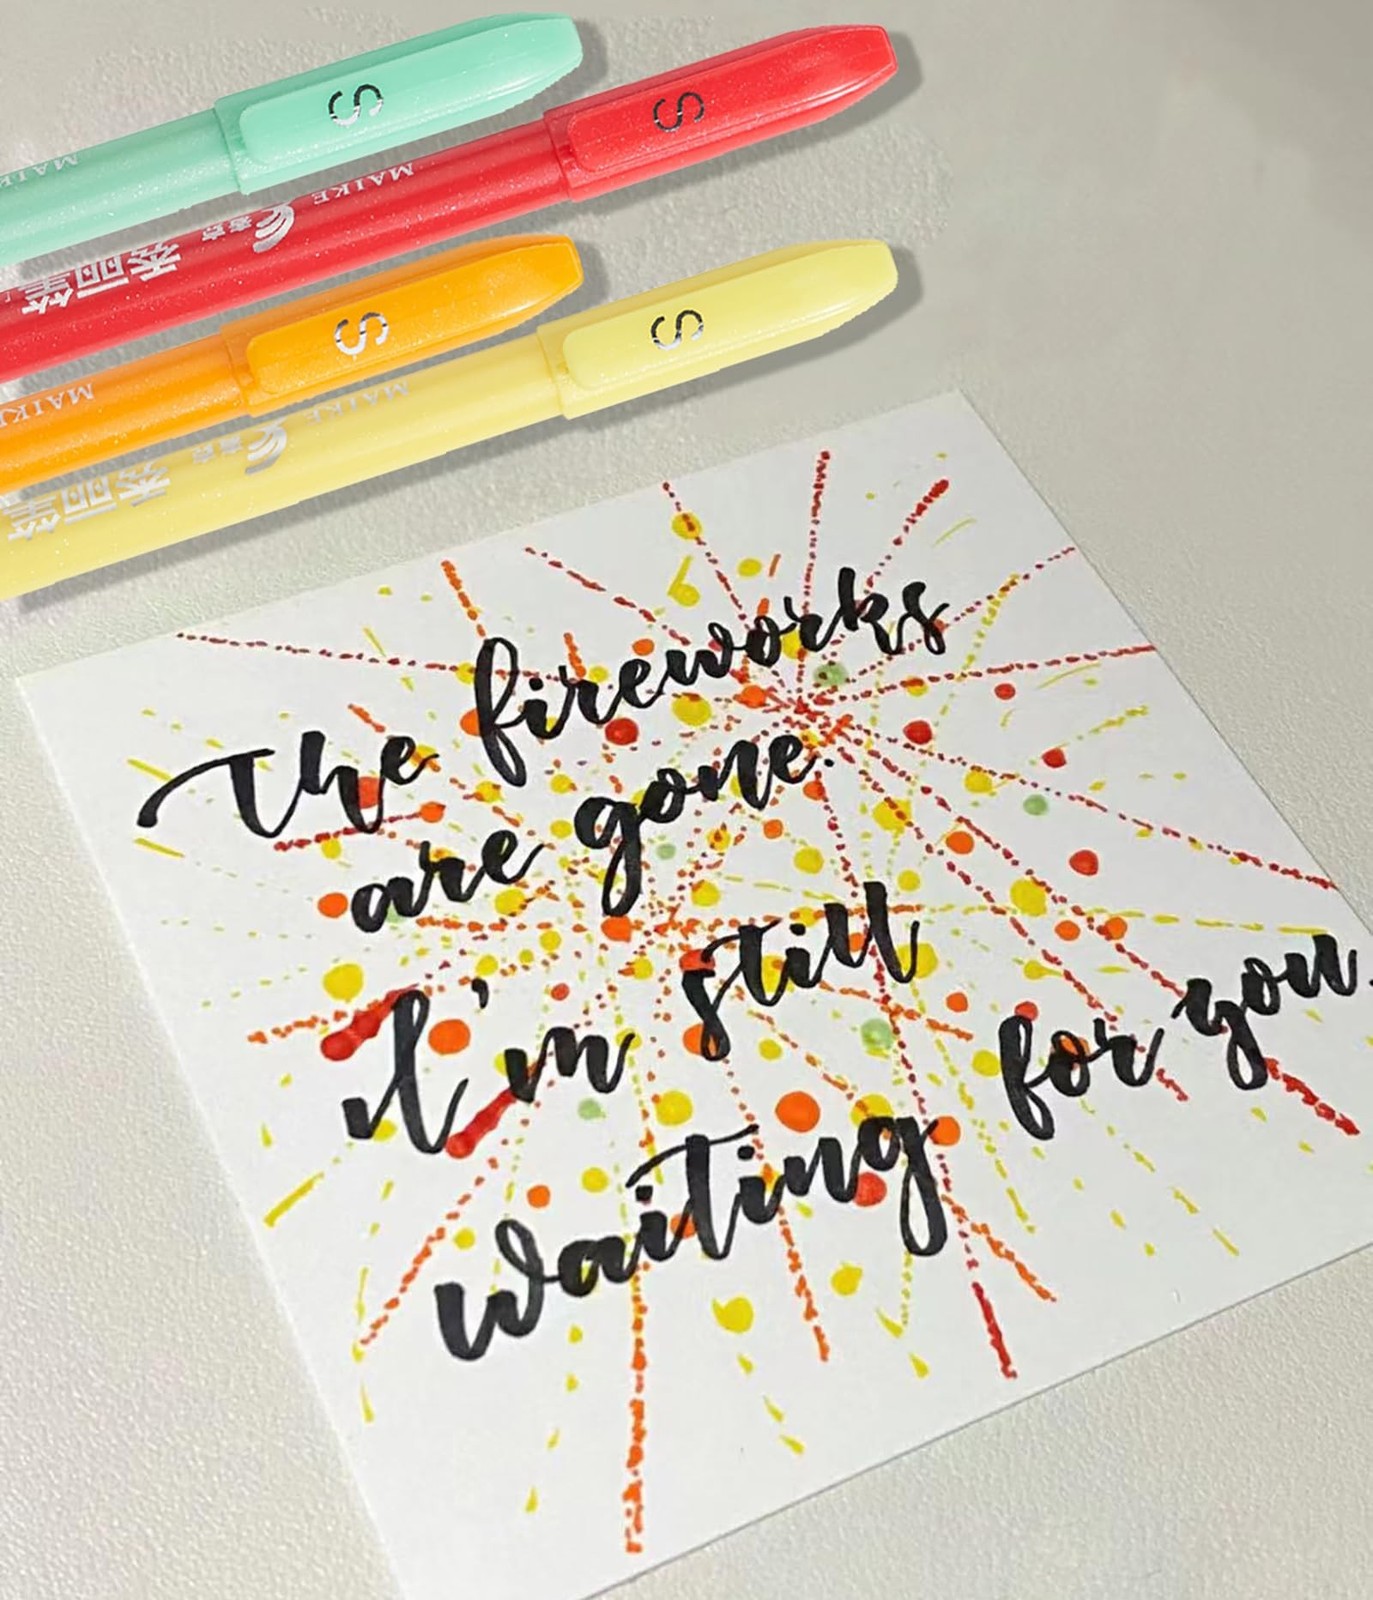 S
S
MAIKE
MAIKE
秀丽笔
S
S
MAIKE
MAIKE
秀丽笔
The fireworks
are gone.
I'm still
waiting for you.